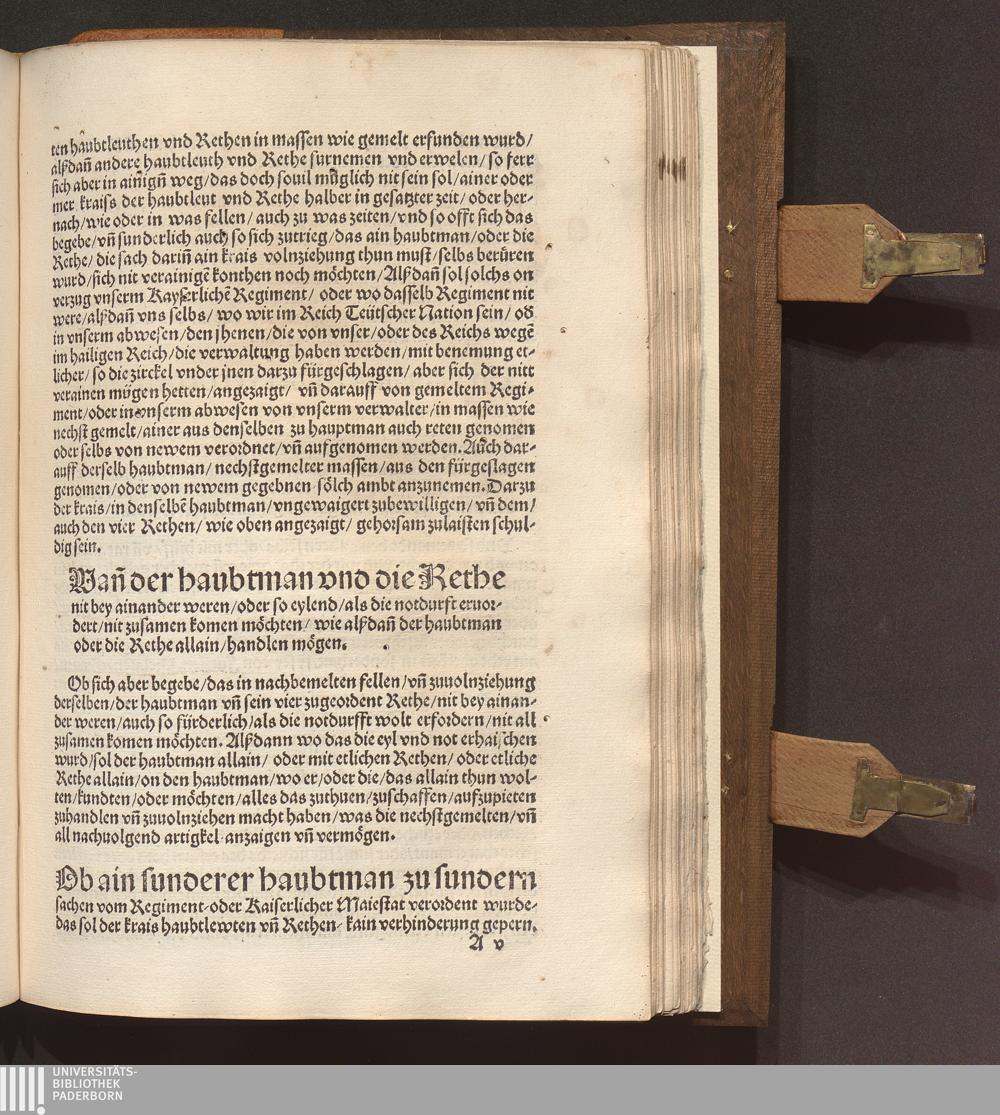 ten haubtleuthen vnd Rethen in massen wie gemelt erfunden wurd/
alßdañ andere haubtleuth vnd Rethe furnemen vnd erwelen/ so ferr
sich aber in ainigñ weg/das doch souil müglich nit sein sol/ainer oder
mer kraiss der haubtleut vnd Rethe halber in gesatzter zeit/ oder her-
nach/wie oder in was fellen/ auch zu was zeiten/vnd so offt sich das
begebe/vñ sunderlich auch so sich zutrieg/das ain haubtman/oder die
Rethe/ die sach dariñ ain krais volnziehung thun must/selbs berüren
wurd/sich nit verainigẽ konthen noch möchten/Alßdañ sol solchs on
verzug vnserm Kayserlichẽ Regiment/ oder wo dasselb Regiment nit
were/alßdañ vns selbs/ wo wir im Reich Teütscher Nation sein/ od
in vnserm abwesen/den jhenen/die von vnser/oder des Reichs wegẽ
im hailigen Reich/die verwaltung haben werden/mit benemung et-
licher/ so die zirckel vnder jnen darzu fürgeschlagen/ aber sich der nitt
verainen mögen hetten/angezaigt/ vñ darauff von gemeltem Regi-
ment/oder in vnserm abwesen von vnserm verwalter/in massen wie
nechst gemelt/ainer aus denselben zu hauptman auch reten genomen
oder selbs von newem verordnet/vñ aufgenomen werden.Auch dar-
auff derselb haubtman/ nechstgemelter massen/aus den fürgeslagen
genomen/oder von newem gegebnen sölch ambt anzunemen.Darzu
der krais/in denselbẽ haubtman/vngewaigert zubewilligen/ vñ dem/
auch den vier Rethen/ wie oben angezaigt/ gehorsam zulaisten schul-
dig sein.
Wañ der haubtman vnd die Rethe
nit bey ainander weren/oder so eylend/als die notdurft eruor-
dert/nit zusamen komen möchten/ wie alßdañ der haubtman
oder die Rethe allain/handlen mögen.
Ob sich aber begebe/das in nachbemelten fellen/vñ zuuolnziehung
derselben/der haubtman vñ sein vier zugeordent Rethe/nit bey ainan-
der weren/auch so fürderlich/als die notdurfft wolt erfordern/nit all
zusamen komen möchten. Alßdann wo das die eyl vnd not erhaischen
wurd/sol der haubtman allain/ oder mit etlichen Rethen/ oder etliche
Rethe allain/on den haubtman/wo er/oder die/das allain thun wol-
ten/kundten/oder möchten/alles das zuthuen/zuschaffen/aufzupieten
zuhandlen vñ zuuolnziehen macht haben/was die nechstgemelten/vñ
all nachuolgend artigkel anzaigen vñ vermögen.
Ob ain sunderer haubtman zu sundern
sachen vom Regiment oder Kaiserlicher Maiestat verordent wurde-
das sol der krais haubtlewten vñ Rethen kain verhinderung gepern.
A v
UNIVERSITÄTS-
BIBLIOTHEK
PADERBORN